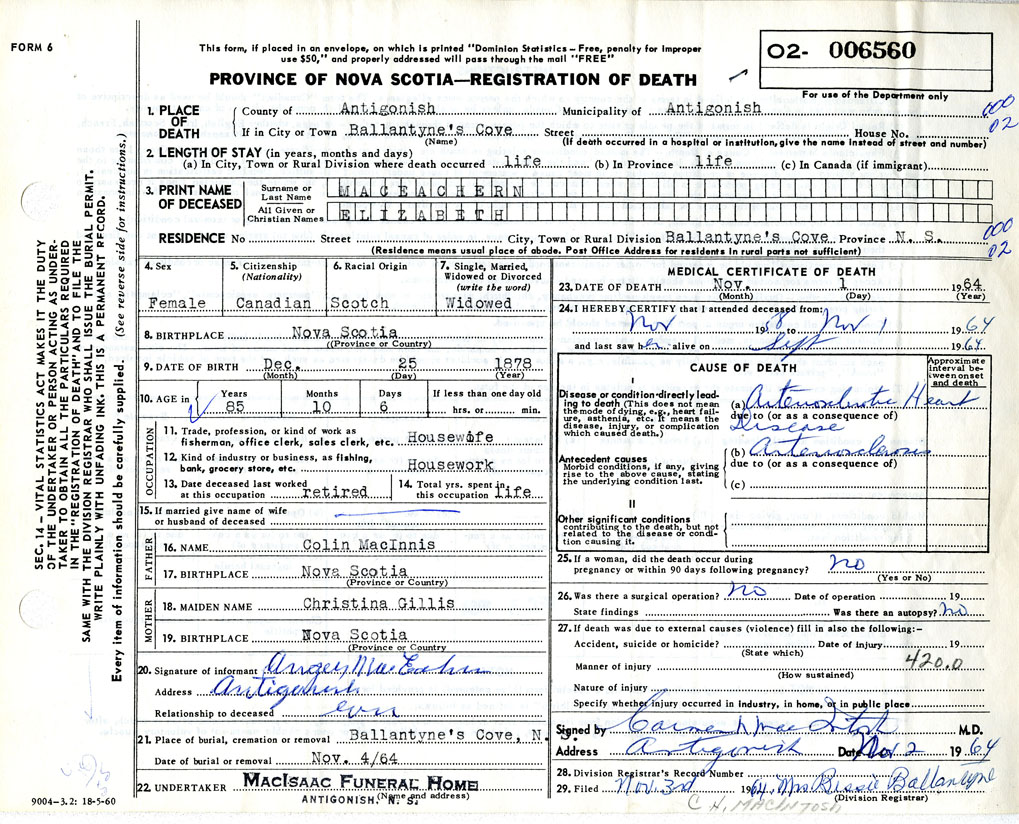 FORM 6
This form, if placed in an envelope, on which is printed "Dominion Statistics – Free, penalty for improper
use $50," and properly addressed will pass through the mail "FREE"
PROVINCE OF NOVA SCOTIA—REGISTRATION OF DEATH
02- 006560
For use of the Department only
000
02
1. PLACE OF DEATH
County of Antigonish Municipality of Antigonish
If in City or Town Ballantyne's Cove Street House No.
(Name) (If death occurred in a hospital or institution, give the name instead of street and number)
2. LENGTH OF STAY (in years, months and days)
(a) In City, Town or Rural Division where death occurred life (b) In Province life (c) In Canada (if immigrant)
3. PRINT NAME OF DECEASED
Surname or Last Name MACEACHERN
All Given or Christian Names ELIZABETH
000
02
RESIDENCE No Street City, Town or Rural Division Ballantyne's Cove Province N. S.
(Residence means usual place of abode. Post Office Address for residents in rural parts not sufficient)
4. Sex
Female
5. Citizenship
(Nationality)
Canadian
6. Racial Origin
Scotch
7. Single, Married,
Widowed or Divorced
(write the word)
Widowed
8. BIRTHPLACE Nova Scotia
(Province or Country)
9. DATE OF BIRTH Dec. 25 1878
(Month) (Day) (Year)
10. AGE in
Years Months Days If less than one day old
85 10 6 hrs. or min.
OCCUPATION
11. Trade, profession, or kind of work as
fisherman, office clerk, sales clerk, etc. Housewife
12. Kind of industry or business, as fishing,
bank, grocery store, etc. Housework
13. Date deceased last worked
at this occupation retired
14. Total yrs. spent in
this occupation life
15. If married give name of wife
or husband of deceased
FATHER
16. NAME Colin MacInnis
17. BIRTHPLACE Nova Scotia
(Province or Country)
MOTHER
18. MAIDEN NAME Christina Gillis
19. BIRTHPLACE Nova Scotia
(Province or Country
20. Signature of informant
Address Antigonish
Relationship to deceased
21. Place of burial, cremation or removal Ballantyne's Cove, N. S.
Date of burial or removal Nov. 4/64
22. UNDERTAKER MACISAAC FUNERAL HOME
(Name and address)
ANTIGONISH, N. S.
9004–3.2: 18-5-60
MEDICAL CERTIFICATE OF DEATH
23. DATE OF DEATH Nov. 1 1964
(Month) (Day) (Year)
24. I HEREBY CERTIFY that I attended deceased from:
Nov 1958 to Nov 1 1964
and last saw her alive on Sept 1964
CAUSE OF DEATH
Approximate
interval be-
tween onset
and death
I
Disease or condition directly lead-
ing to death (This does not mean
the mode of dying, e.g., heart fail-
ure, asthenia, etc. It means the
disease, injury, or complication
which caused death.)
(a) Arteriosclerotic Heart
due to (or as a consequence of)
Disease
Antecedent causes
Morbid conditions, if any, giving
rise to the above cause, stating
the underlying condition last.
(b) Arteriosclerosis
due to (or as a consequence of)
(c)
II
Other significant conditions
contributing to the death, but not
related to the disease or condi-
tion causing it.
25. If a woman, did the death occur during
pregnancy or within 90 days following pregnancy? no
(Yes or No)
26. Was there a surgical operation? no Date of operation 19
State findings Was there an autopsy? no
27. If death was due to external causes (violence) fill in also the following:–
Accident, suicide or homicide? Date of injury 19
(State which)
420.0
Manner of injury
(How sustained)
Nature of injury
Specify whether injury occurred in industry, in home, or in public place
Signed by M.D.
Address Antigonish Date Nov 2 1964
28. Division Registrar's Record Number
29. Filed Nov. 3rd 1964 Mrs Bessie Ballantyne
(Division Registrar)
C H. MACINTOSH
SEC. 14 – VITAL STATISTICS ACT MAKES IT THE DUTY
OF THE UNDERTAKER OR PERSON ACTING AS UNDER-
TAKER TO OBTAIN ALL THE PARTICULARS REQUIRED
IN THE "REGISTRATION OF DEATH" AND TO FILE THE
SAME WITH THE DIVISION REGISTRAR WHO SHALL ISSUE THE BURIAL PERMIT.
WRITE PLAINLY WITH UNFADING INK. THIS IS A PERMANENT RECORD.
Every item of information should be carefully supplied. (See reverse side for instructions.)